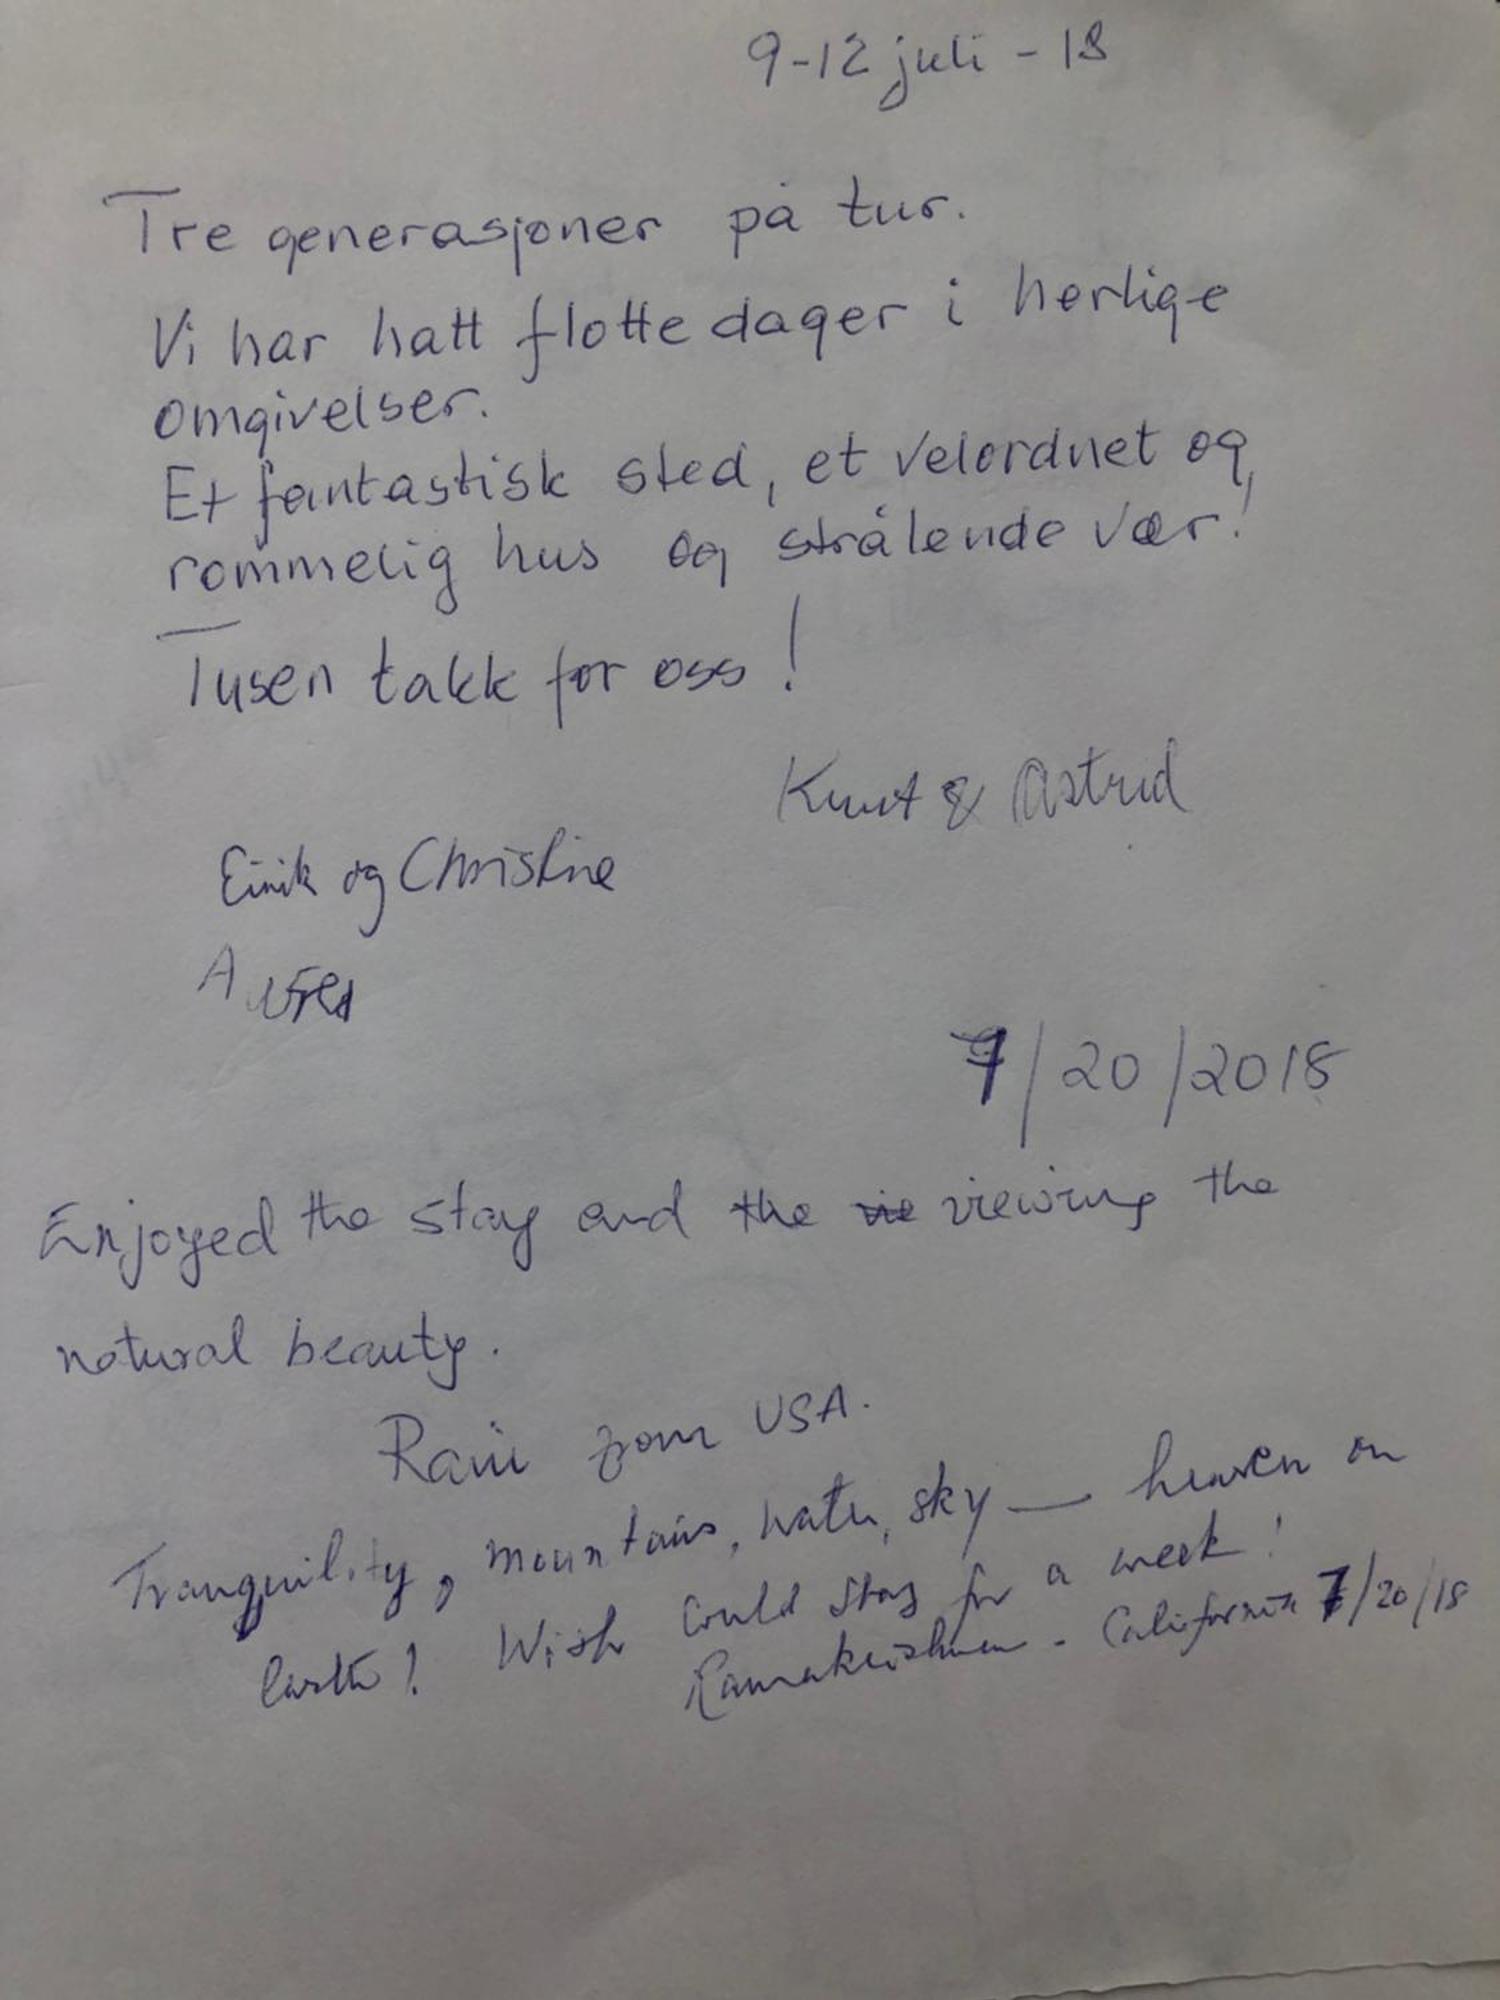 9-12 juli - 18
Tre generasjoner på tur.
Vi har hatt flotte dager i herlige
omgivelser.
Et fantastisk sted, et velordnet og
rommelig hus og strålende vær!
Tusen takk for oss!
Knut & Astrid
Eirik og Christine
A
7/20/2018
Enjoyed the stay and the vie viewing the
natural beauty.
Ravi from USA.
Tranquility, mountains, water, sky — heaven on
Earth! Wish could stay for a week!
Ramakrishnan - California 7/20/18